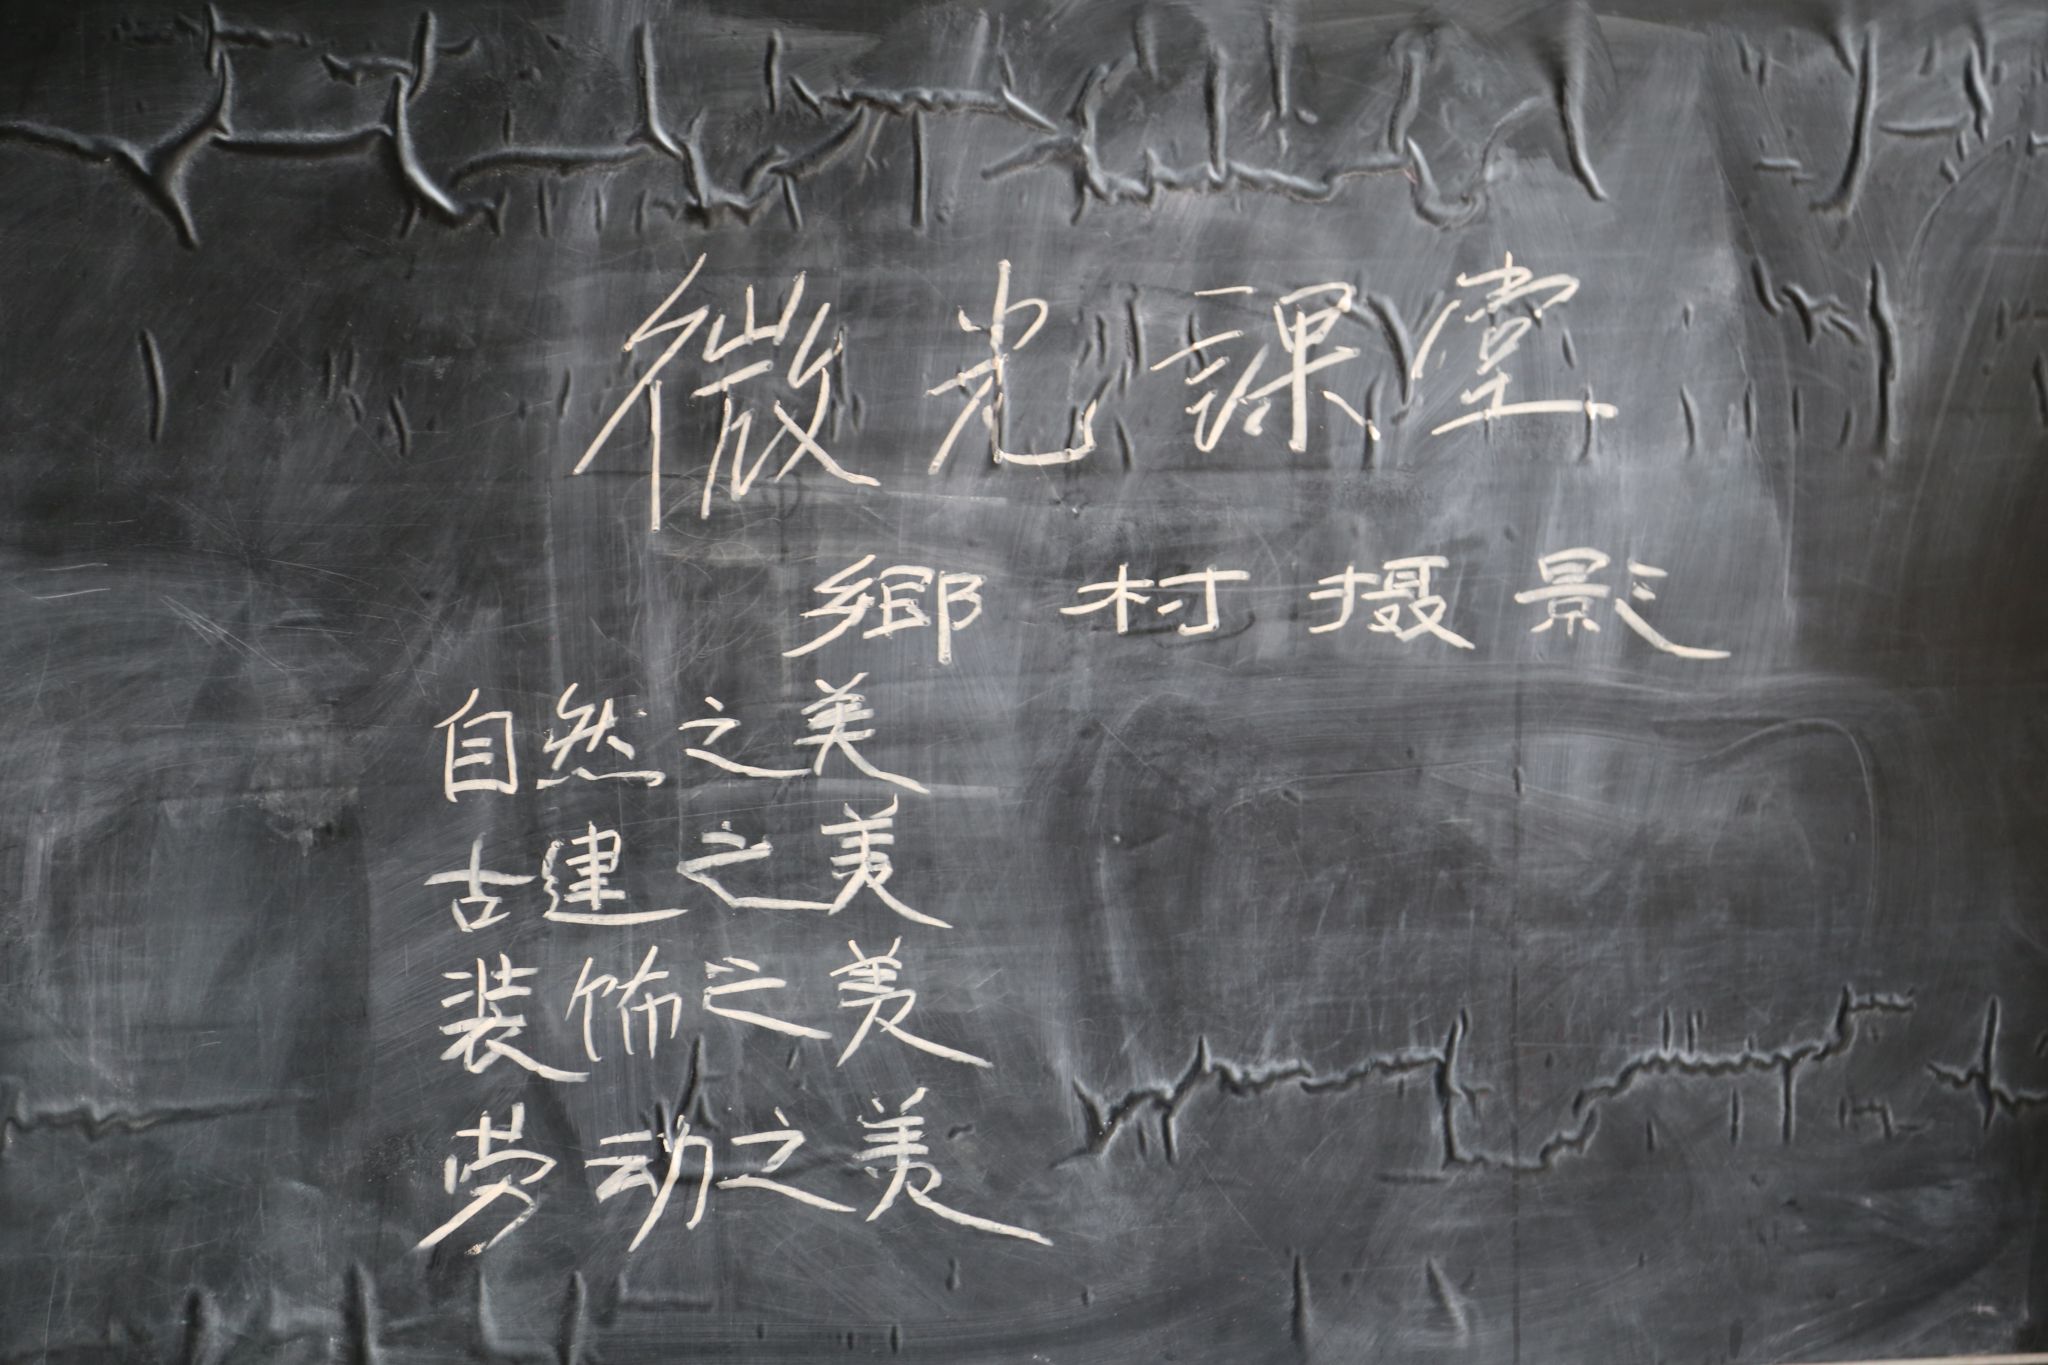 微光課堂
鄉村摄影
自然之美
古建之美
装饰之美
劳动之美